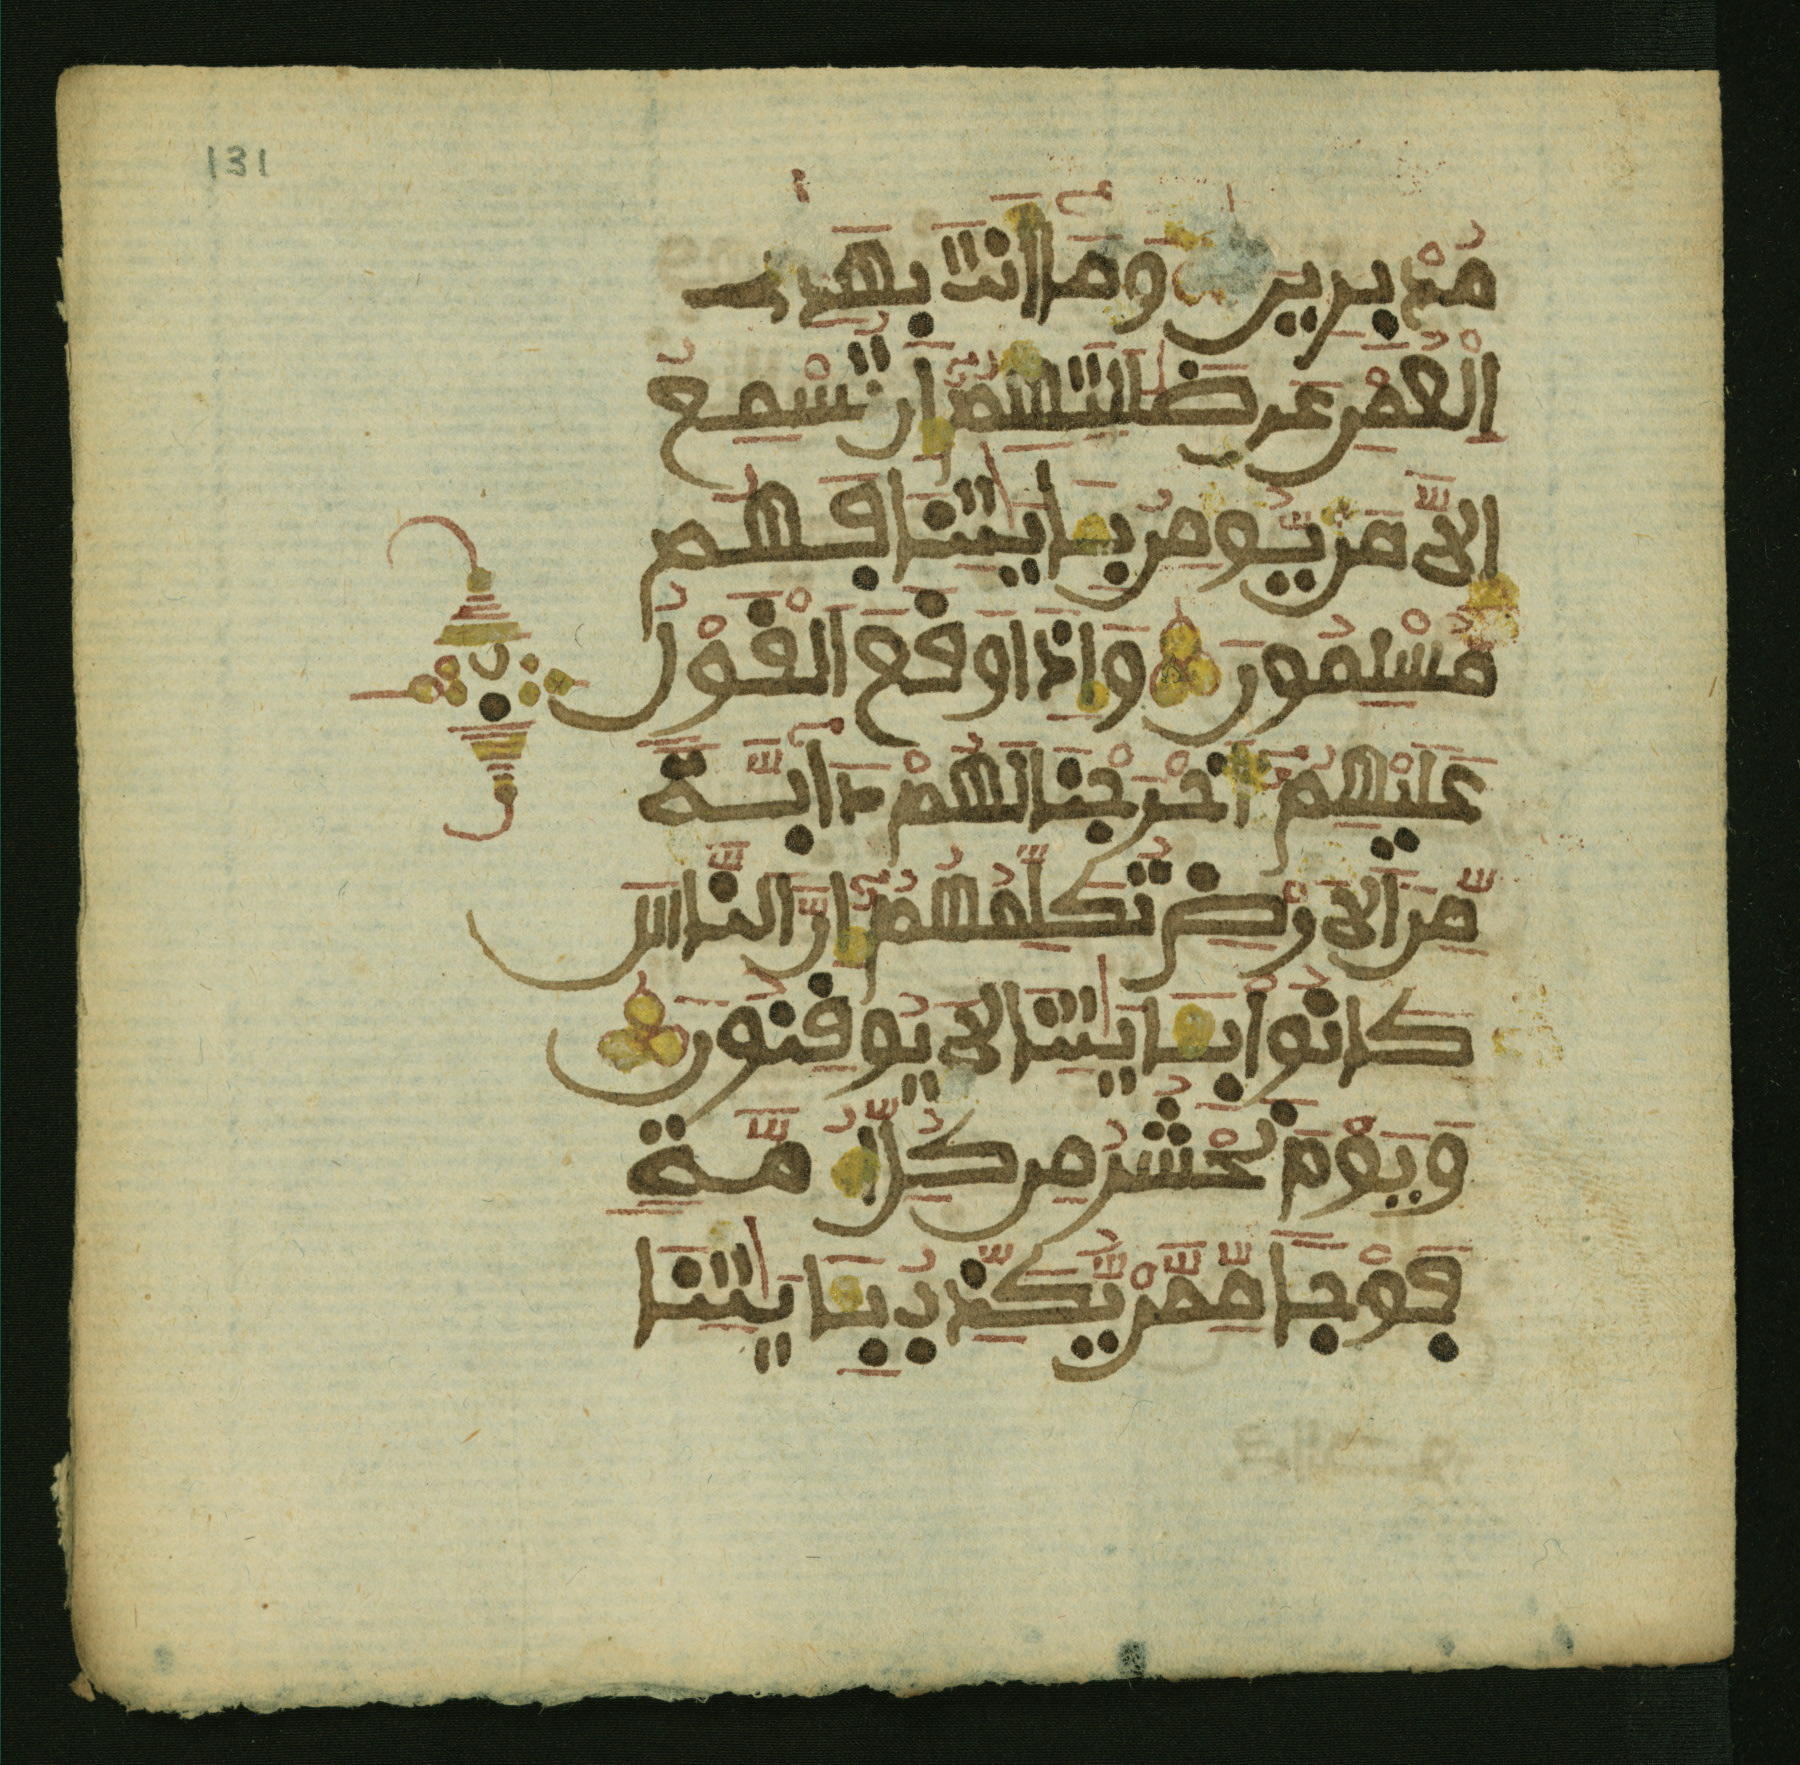 131
مُدْبِرِينَ وَمَا أَنتَ بِهَٰدِے
اِ۬لْعُمْيِ عَن ضَلَٰلَتِهِمُۥٓ إِن تُسْمِعُ
إِلَّا مَنْ يُّومِنُ بِـَٔايَٰتِنَا فَهُم
مُّسْلِمُونَ وَإِذَا وَقَعَ اَ۬لْقَوْلُ
عَلَيْهِمُۥٓ أَخْرَجْنَا لَهُمْ دَآبَّةً
مِّنَ اَ۬لَارْضِ تُكَلِّمُهُمُۥٓ إِنَّ اَ۬لنَّاسَ
كَانُوا بِـَٔايَٰتِنَا لَا يُوقِنُونَ
وَيَوْمَ نَحْشُرُ مِن كُلِّ أُمَّةٍ
فَوْجًا مِّمَّنْ يُّكَذِّبُ بِـَٔايَٰتِنَا